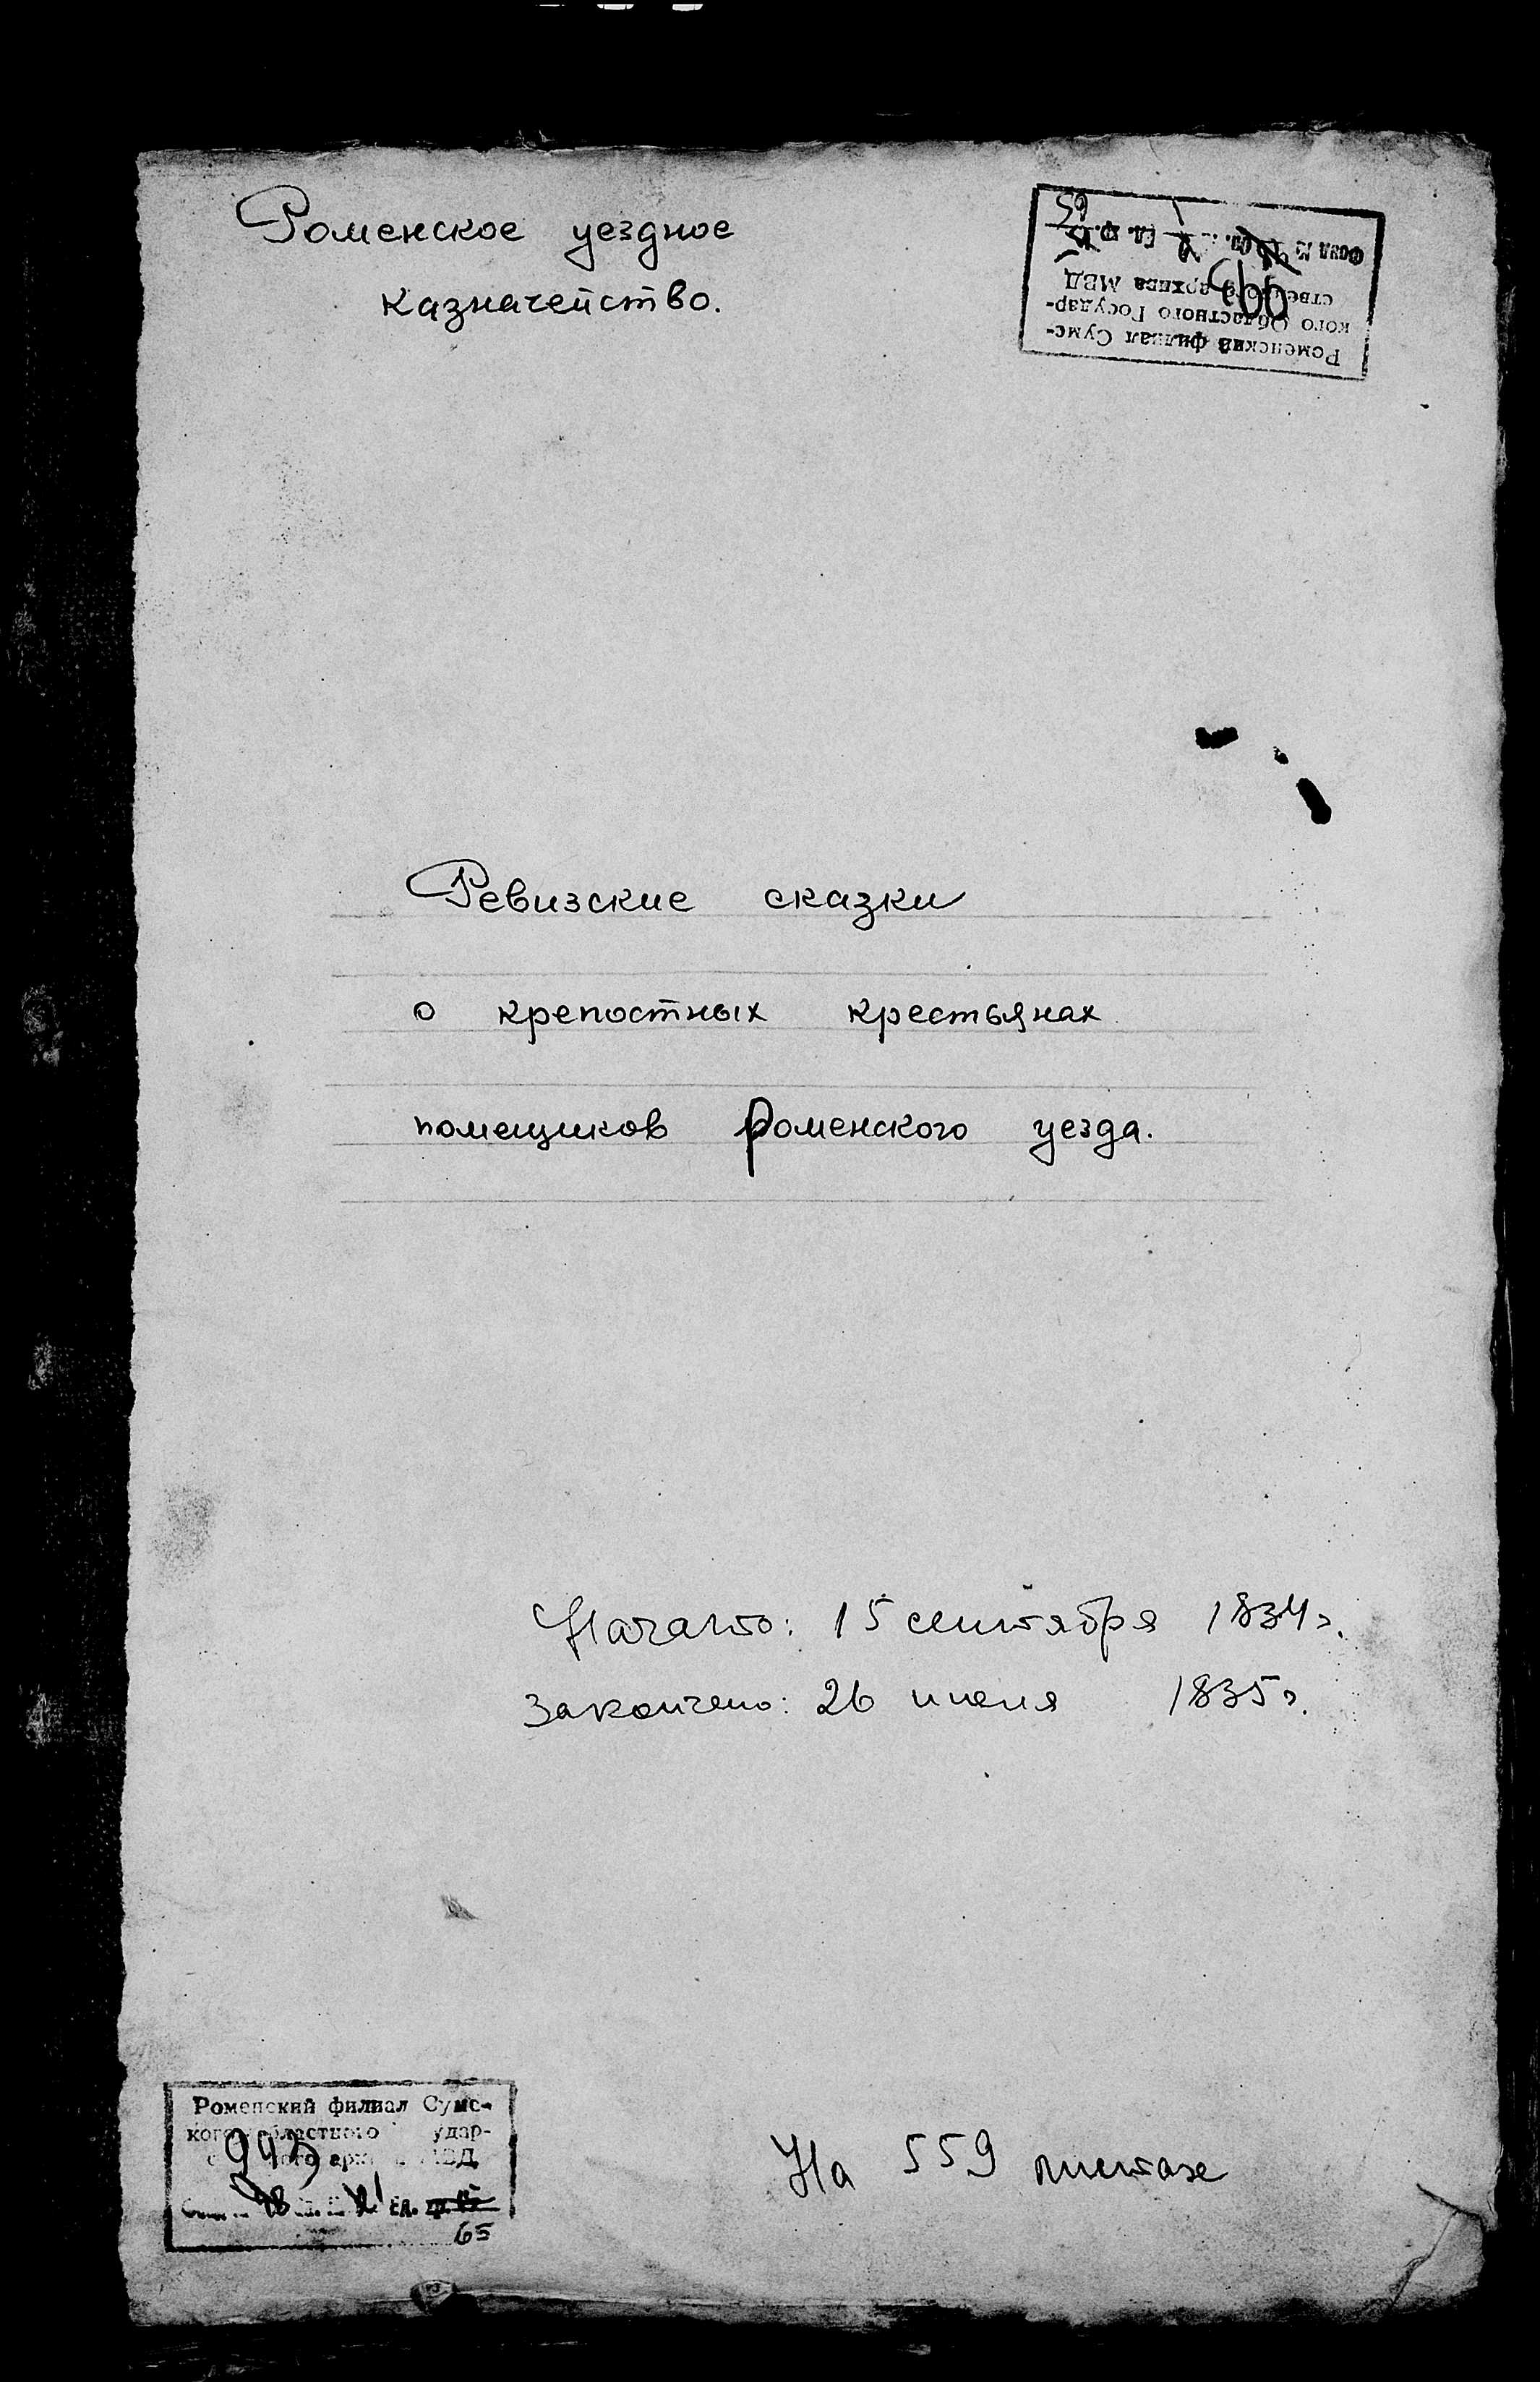 Роменское уездное
казначейство.
Роменский филиал Сумс-
кого Областного Государ-
ственного архива МВД
993
Фонд № Оп. 1 Ед. хр.
65
Ревизские сказки
о крепостных крестьянах
помещиков Роменского уезда.
Начато: 15 сентября 1834г.
Закончено: 26 июня 1835г.
На 559 листах
Роменский филиал Сумс-
кого Областного Государ-
993
Ед. хр.
65